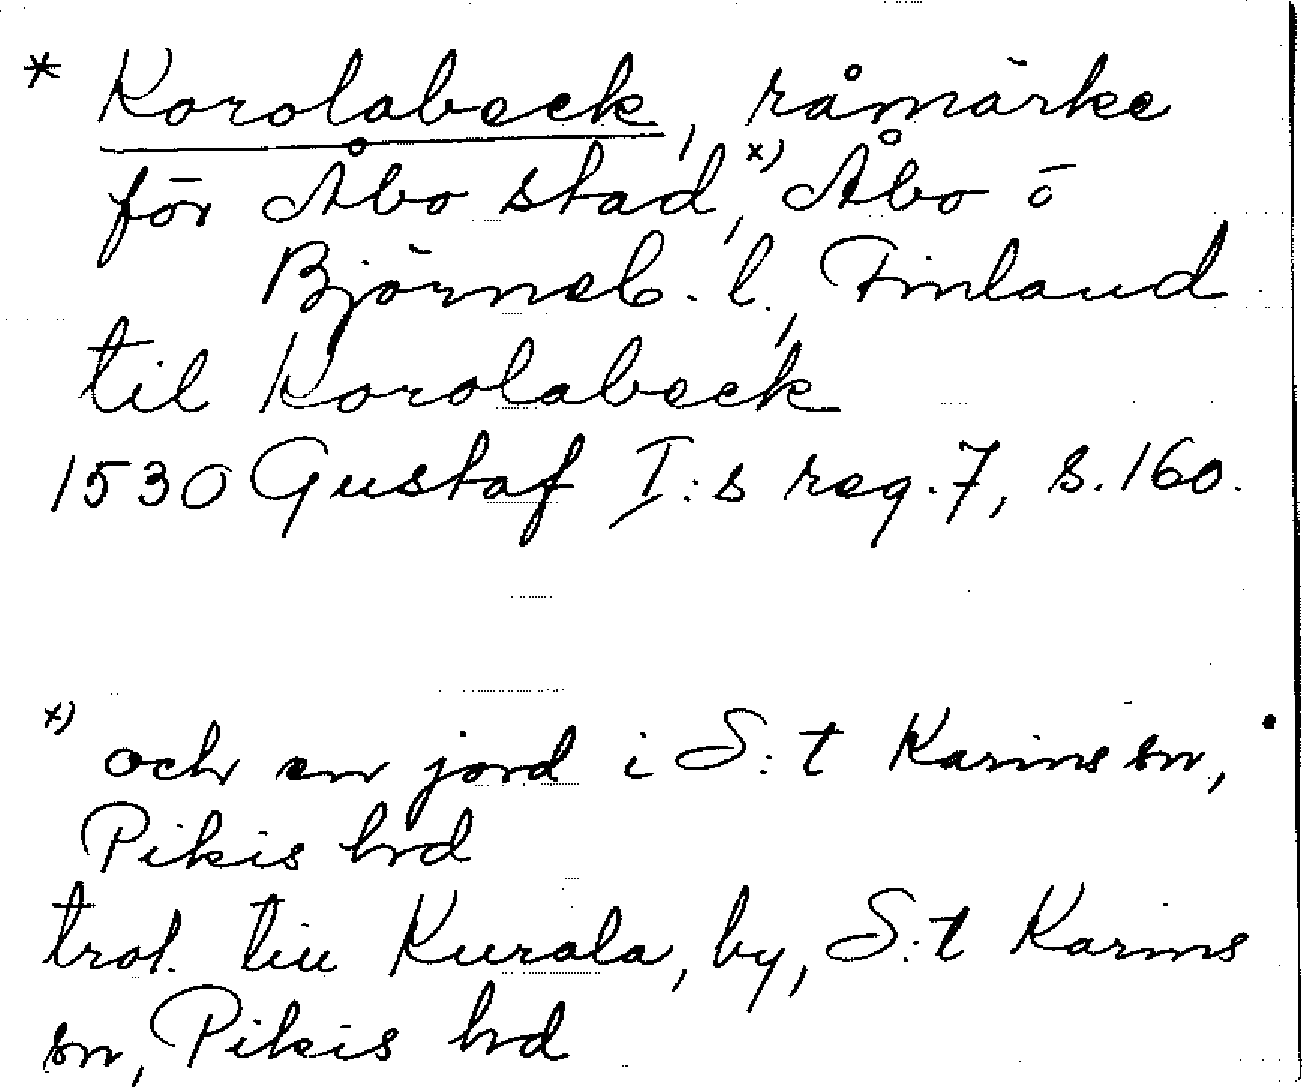 * Korolabeck, råmärke
för Åbo stad,ˣ⁾ Åbo ö
Björneb. l., Finland
til Korolabeck
1530 Gustaf I:s reg. 7, s. 160.
ˣ⁾ och en jord i S:t Karins sn,
Pikis hrd
trol. till Kurala, by, S:t Karins
sn, Pikis hrd